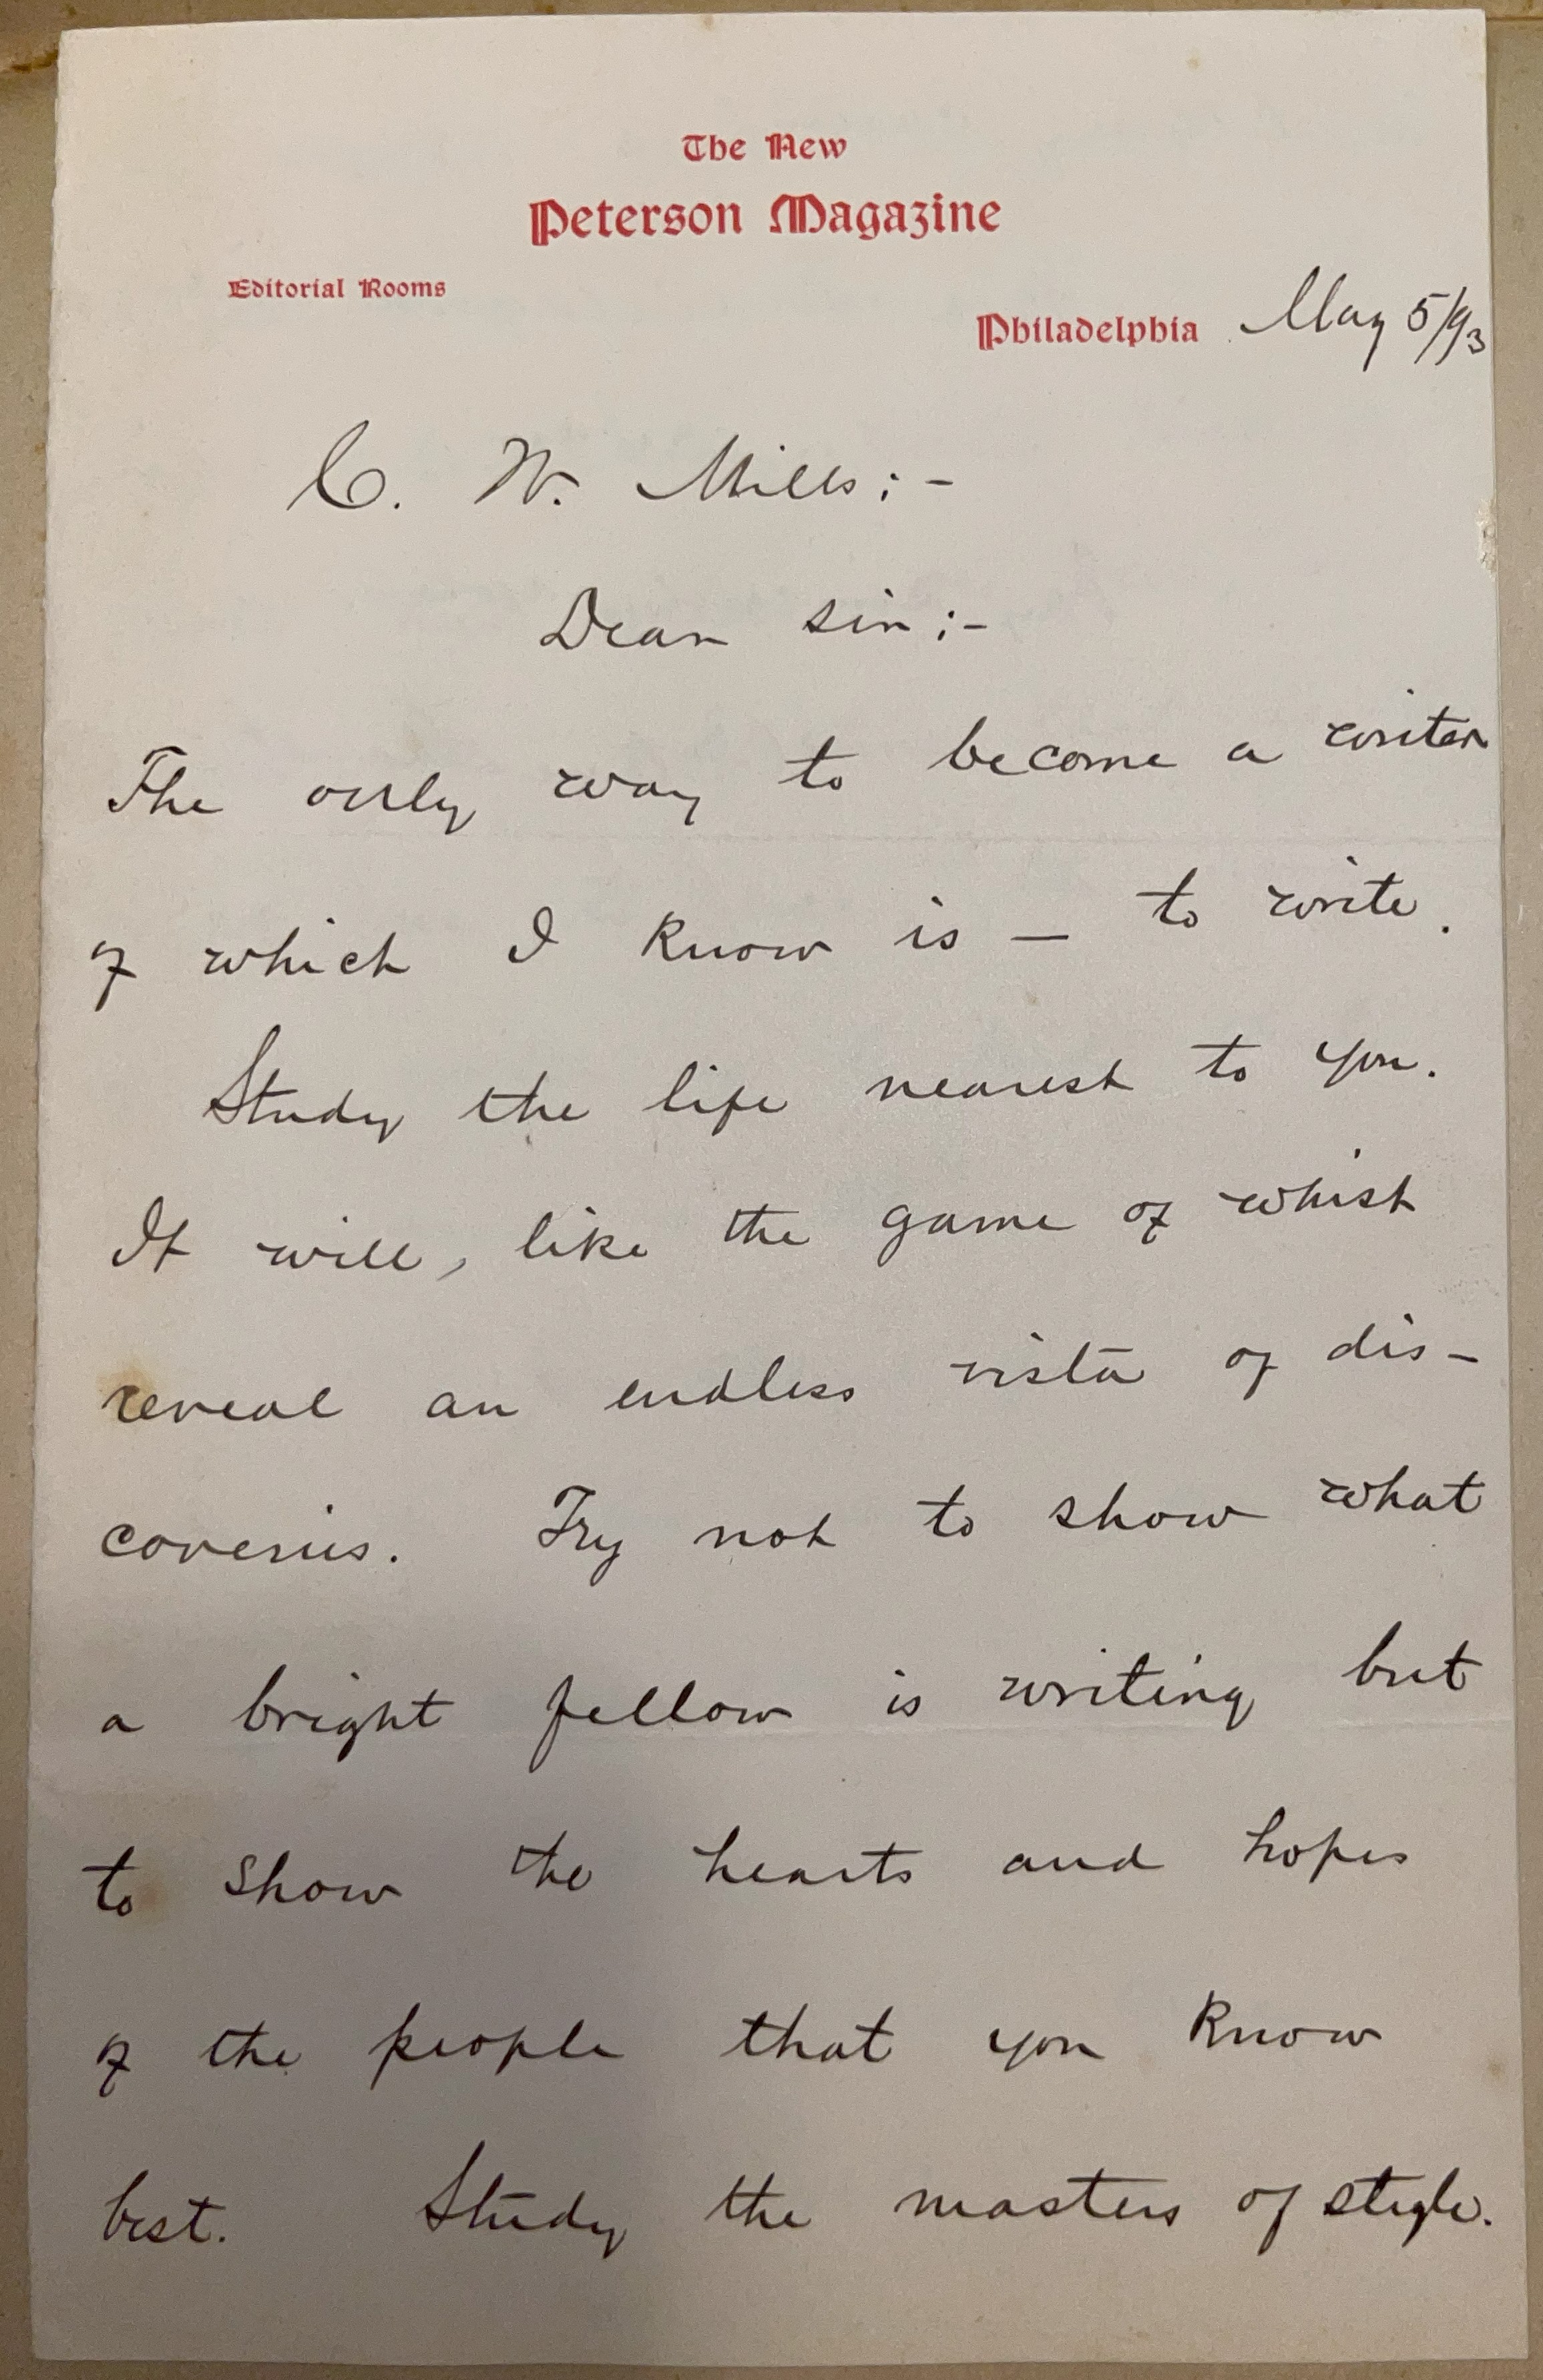 The New
Peterson Magazine
Editorial Rooms
Philadelphia May 5/93
C. W. Mills:-
Dear sir:-
The only way to become a writer
of which I know is — to write.
Study the life nearest to you.
It will, like the game of whist
reveal an endless vista of dis-
coveries. Try not to show what
a bright fellow is writing but
to show the hearts and hopes
of the people that you know
best. Study the masters of style.